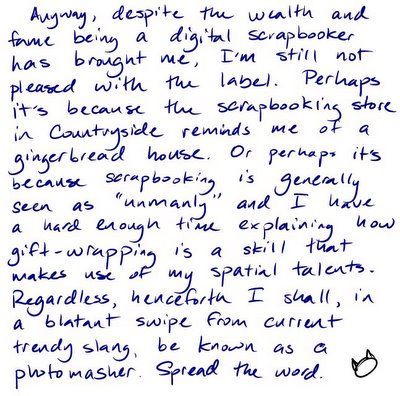 Anyway, despite the wealth and
fame being a digital scrapbooker
has brought me, I'm still not
pleased with the label. Perhaps
it's because the scrapbooking store
in Countryside reminds me of a
gingerbread house. Or perhaps it's
because scrapbooking is generally
seen as "unmanly" and I have
a hard enough time explaining how
gift-wrapping is a skill that
makes use of my spatial talents.
Regardless, henceforth I shall, in
a blatant swipe from current
trendy slang, be known as a
photomasher. Spread the word.